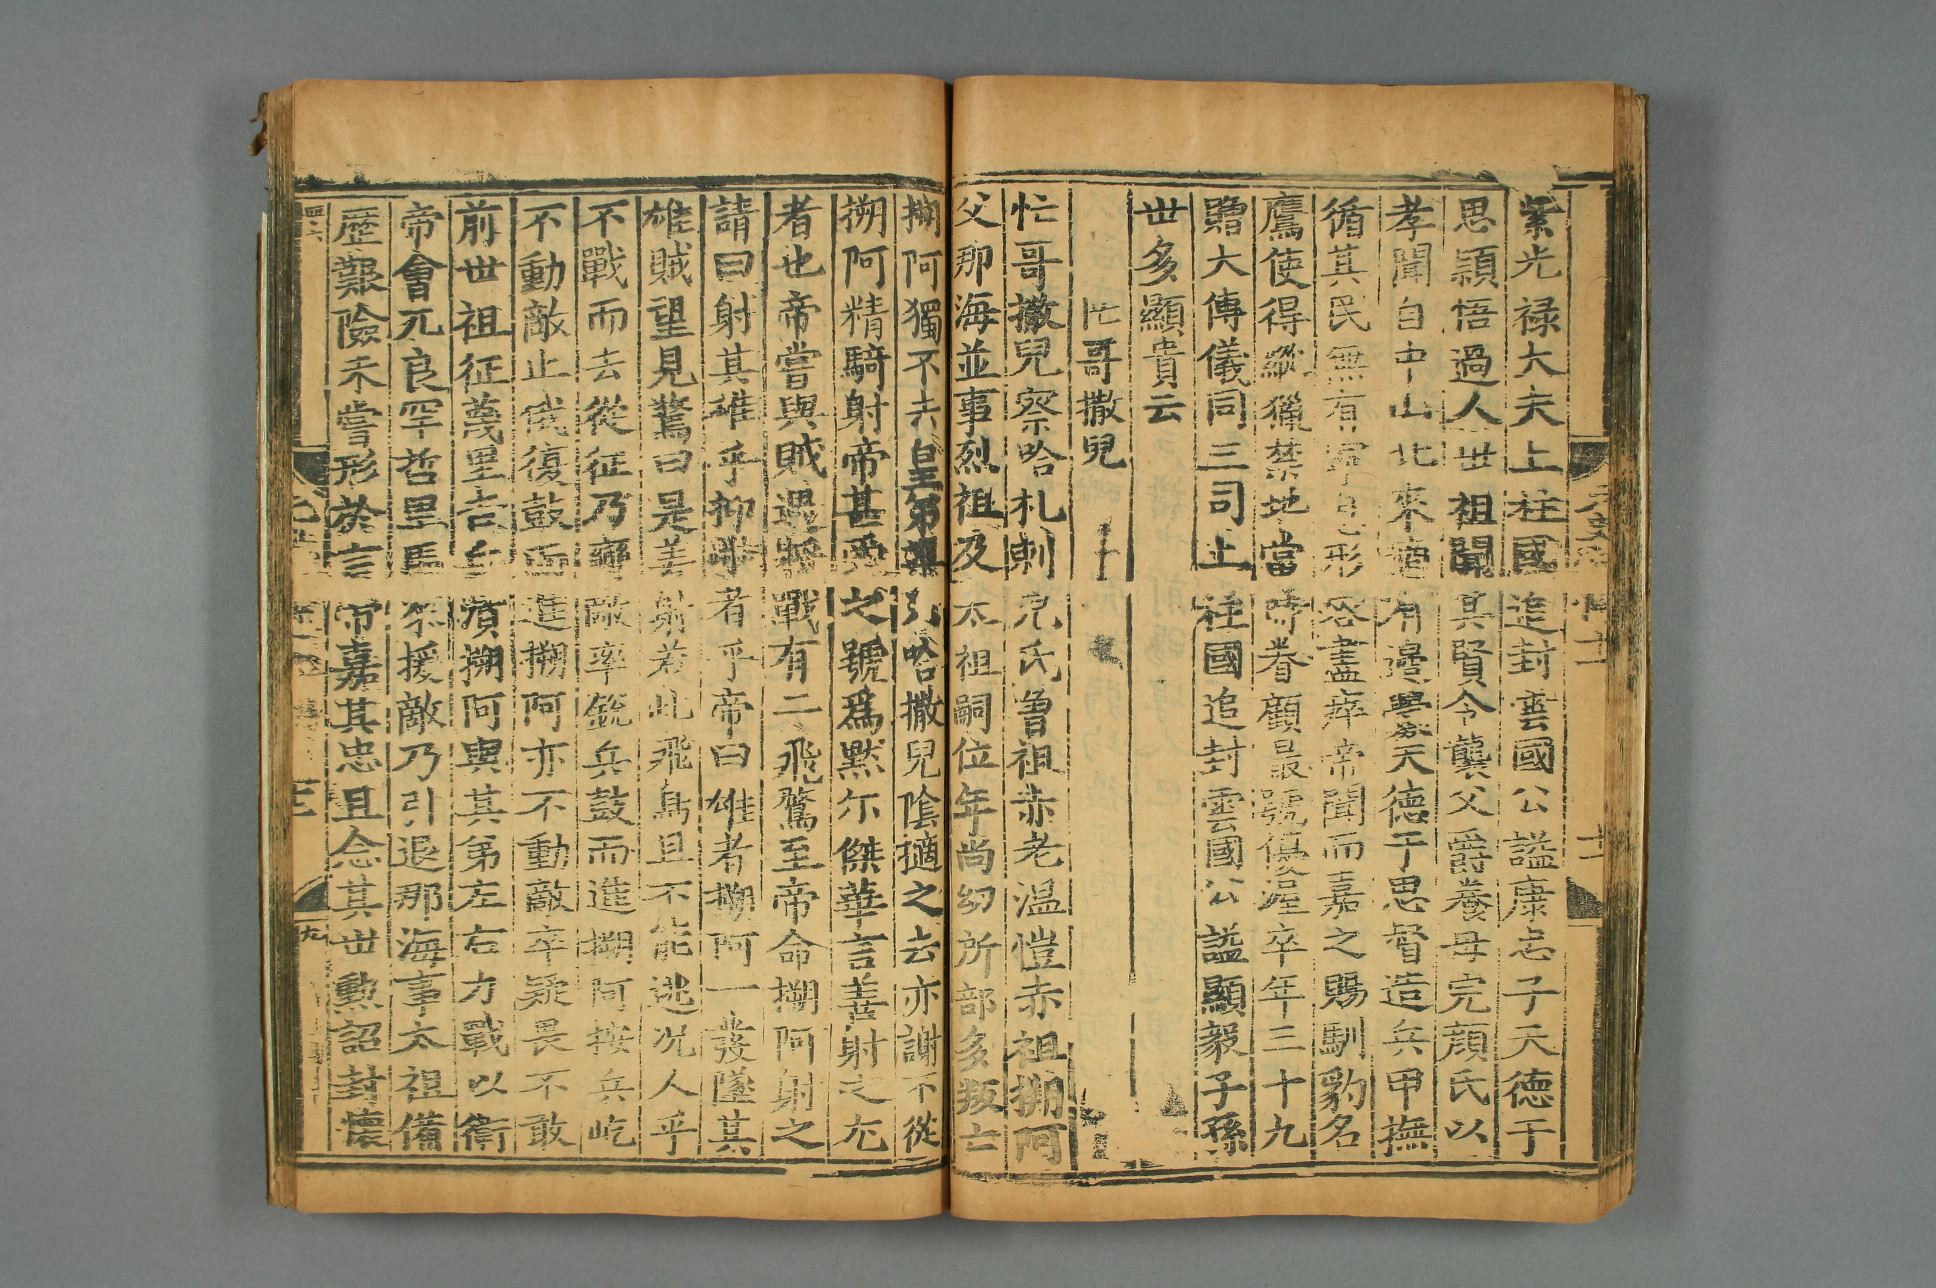 紫光祿大夫上柱國追封雲國公謚康忠子天德于
思穎悟過人世祖聞其賢令襲父爵養母完顏氏以
孝聞自中山北來適有邊釁天德于思督造兵甲撫
循其民無有寧息形容盡瘁帝聞而嘉之賜馴豹名
鷹使得縱獵禁地當時眷顧最號優渥卒年三十九
贈大傅儀同三司上柱國追封雲國公謚顯毅子孫
世多顯貴云
忙哥撒兒
忙哥撒兒察哈札剌兒氏曾祖赤老溫愷赤祖搠阿
父那海並事烈祖及太祖嗣位年尚幼所部多叛亡
搠阿獨不去皇弟槊只哈撒兒陰擿之去亦謝不從
搠阿精騎射帝甚愛之號為默尓傑華言善射之尤
者也帝嘗與賊遇將戰有二飛鶩至帝命搠阿射之
請曰射其雄乎抑雌者乎帝曰雄者搠阿一發墜其
雄賊望見驚曰是善射若此飛鳥且不能逃況人乎
不戰而去從征乃蠻敵率銳兵鼓而進搠阿按兵屹
不動敵止俄復鼓而進搠阿亦不動敵卒疑畏不敢
前世祖征蔑里吉兵潰搠阿與其弟左右力戰以衛
帝會兀良罕哲里馬來援敵乃引退那海事太祖備
歷艱險未嘗形於言帝嘉其忠且念其世勲詔封懷